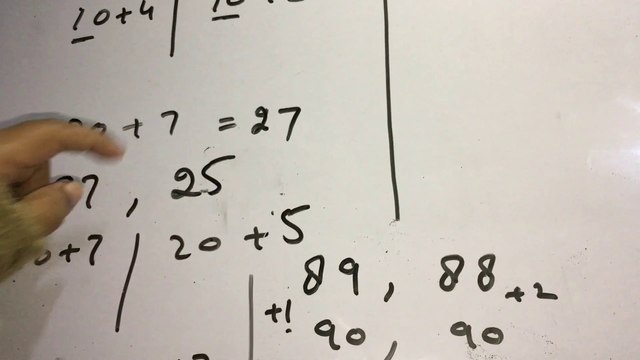 10+4 | 10
+ 7 = 27
7 , 25
+7 | 20 + 5
89 , 88 +2
+1
90 , 90